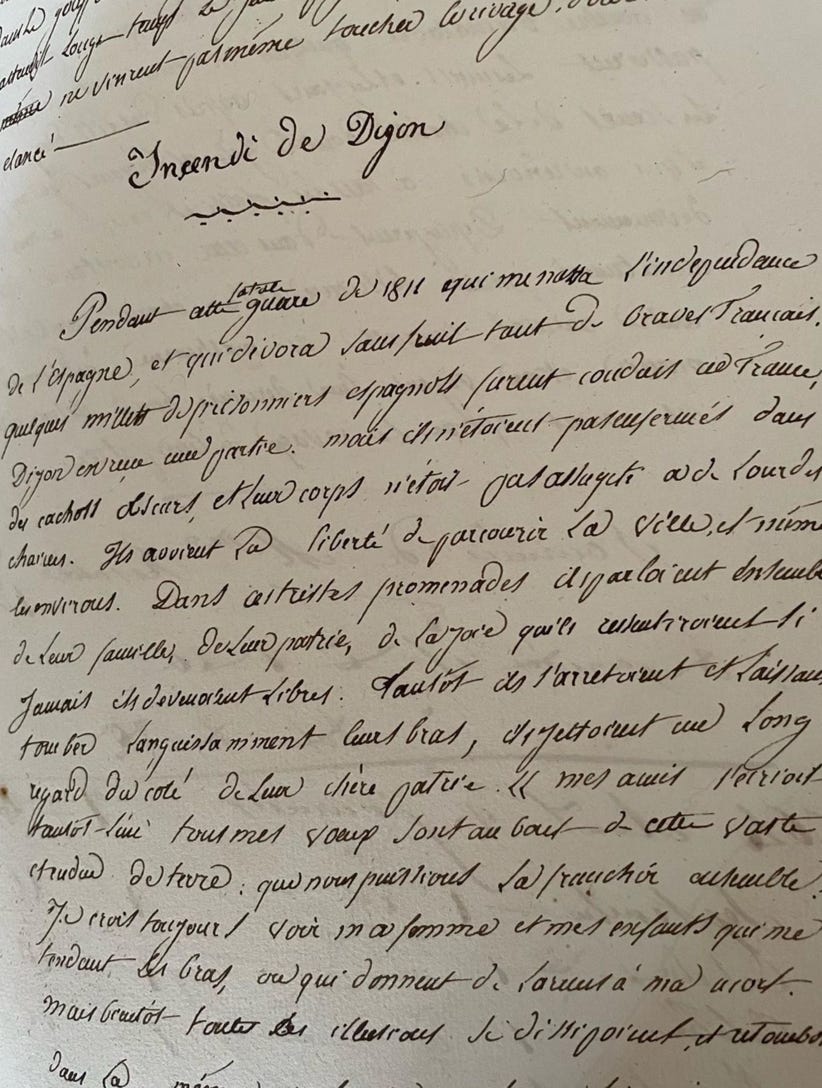 ne vinrent pas même toucher le rivage.
élancé
Incendi de Dijon
Pendant cette fatale guerre de 1811 qui menassa l'indépendance
de l'Espagne, et qui dévora sans fruit tant de braves Francais,
quelques milles de prisonniers espagnols furent conduits en France,
Dijon en reçu une partie. mais ils n'étoient pas enfermés dans
des cachots obscurs, et leur corps n'étoit pas assujeti a de lourdes
chaines. Ils avoient la liberté de parcourir la ville, et même
les environs. Dans ces tristes promenades ils parloient ensemble
de leur famille, de leur patrie, de la joie qu'ils ressentiroient si
jamais ils devenoient libres. Tantôt ils s'arretoient et laissant
tomber languissamment leurs bras, ils jettoient un long
regard du coté de leur chère patrie. « mes amis s'écrioit
tantôt l'un tous mes voeux sont au bout de cette vaste
etendue de terre ; que nous puissions la franchir ensemble.
Je crois toujours voir ma femme et mes enfants qui me
tendent les bras, ou qui donnent de larmes à ma mort.
Mais bientôt toutes les illusions se dissipoient, et retomboi
dans la